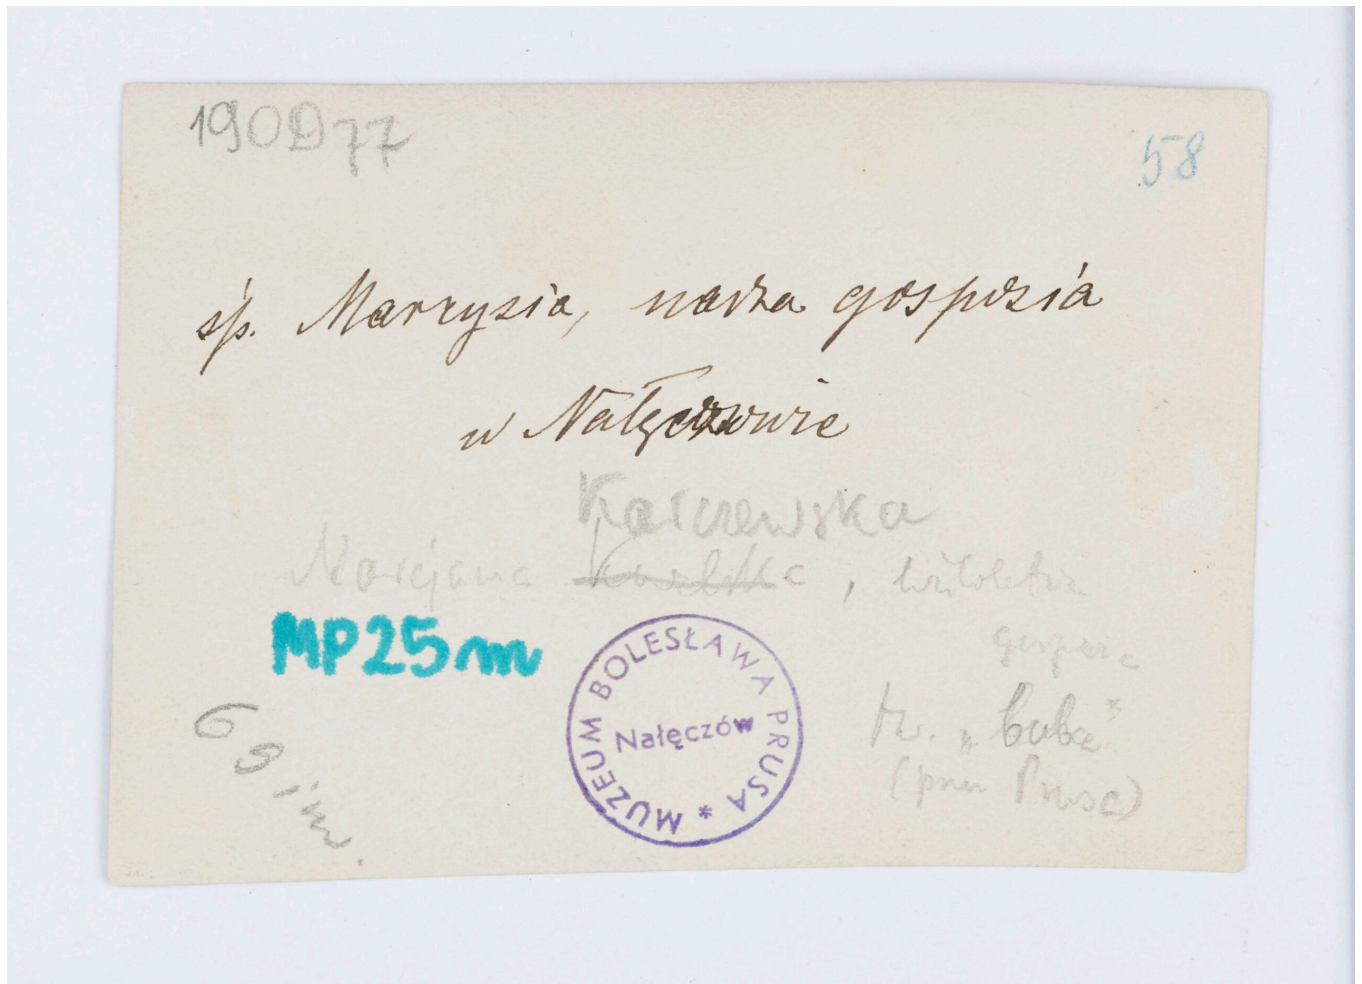 190D77
58
śp. Marzysia, nasza gosposia
w Nałęczowie
Karczewska
Marcjana , wieloletnia
gosposia
tzw. „baba”
(przez Prusa)
MP25m
MUZEUM BOLESŁAWA PRUSA *
Nałęczów
69im.